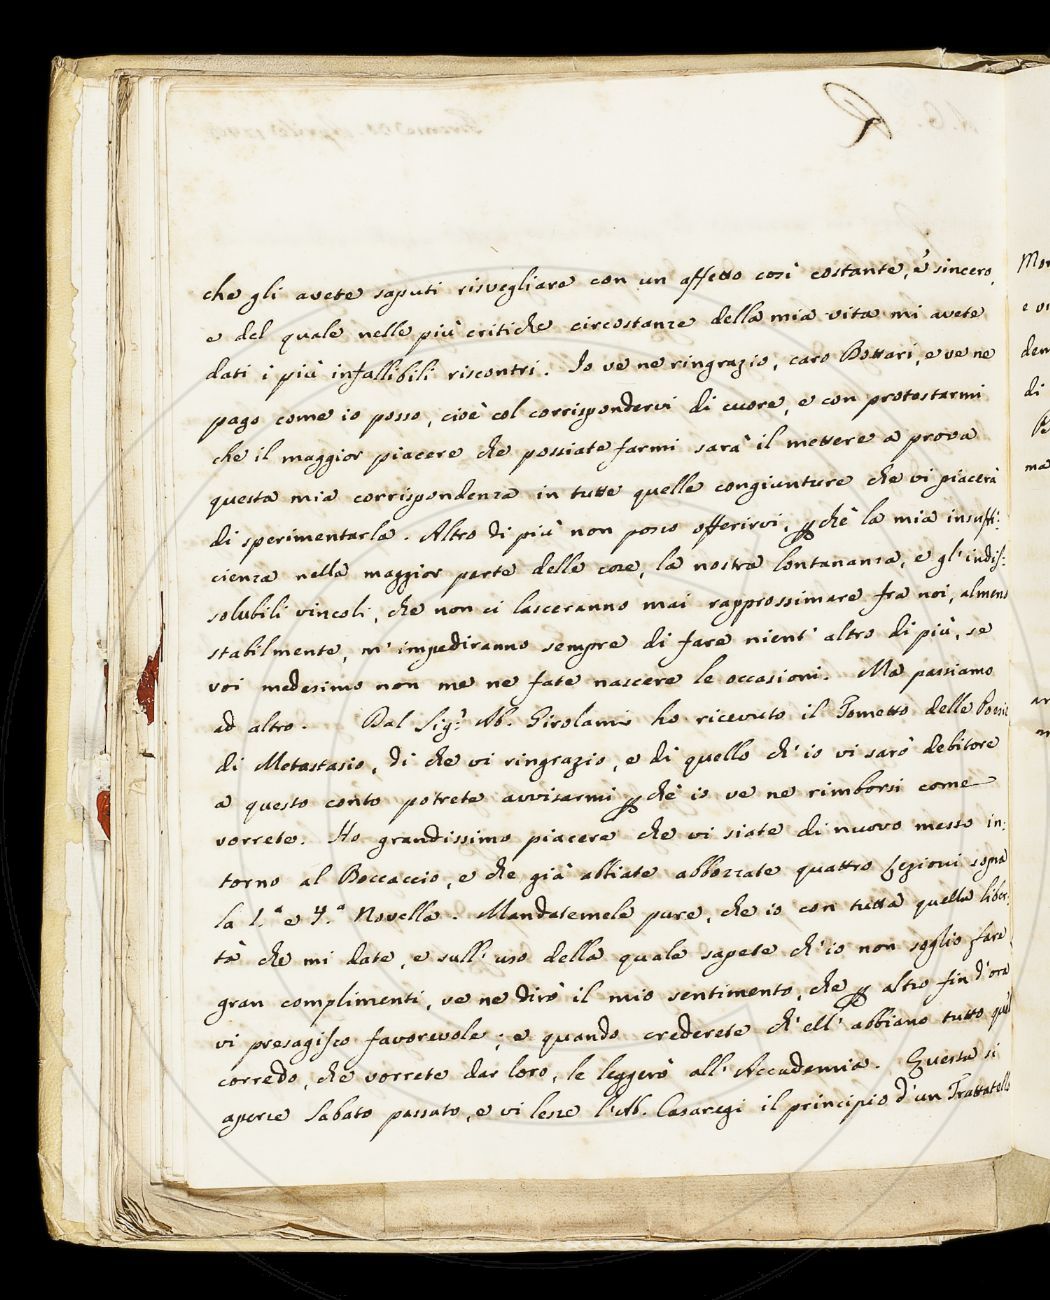 che gli avete saputi risvegliare con un affetto così costante, e sincero,
e del quale nelle più critiche circostanze della mia vita mi avete
dati i più infallibili riscontri. Io ve ne ringrazio, caro Bottari, e ve ne
pago come io posso, cioè col corrispondervi di cuore, e con protestarmi
che il maggior piacere che possiate farmi sarà il mettere a prova
questa mia corrispondenza in tutte quelle congiunture che vi piacerà
di sperimentarla. Altro di più non posso offerirvi, p chè la mia insuffi:
cienza nella maggior parte delle cose, la nostra lontananza, e gl' indis:
solubili vincoli, che non ci lasceranno mai rapprossimare fra noi, almeno
stabilmente, m' impediranno sempre di fare nient' altro di più, se
voi medesimo non me ne fate nascere le occasioni. Ma passiamo
ad altro. Dal Sig.r Ab. Girolami ho ricevuto il Tometto delle Poesie
di Metastasio, di che vi ringrazio, e di quello ch' io vi sarò debitore
a questo conto potrete avvisarmi p chè io ve ne rimborsi come
vorrete. Ho grandissimo piacere che vi siate di nuovo messo in:
torno al Boccaccio, e che già abbiate abbozzate quattro Lezioni sopra
la 1.a e 4.a Novella. Mandatemele pure, che io con tutta quella liber:
tà che mi date, e sull' uso della quale sapete ch' io non soglio fare
gran complimenti, ve ne dirò il mio sentimento, che p altro fin d' ora
vi presagisco favorevole; e quando crederete ch' ell' abbiano tutto quel
corredo, che vorrete dar loro, le leggerò all' Accademia. Questa si
aperse Sabato passato, e vi lesse l' Ab. Casaregi il principio d' un Trattatello